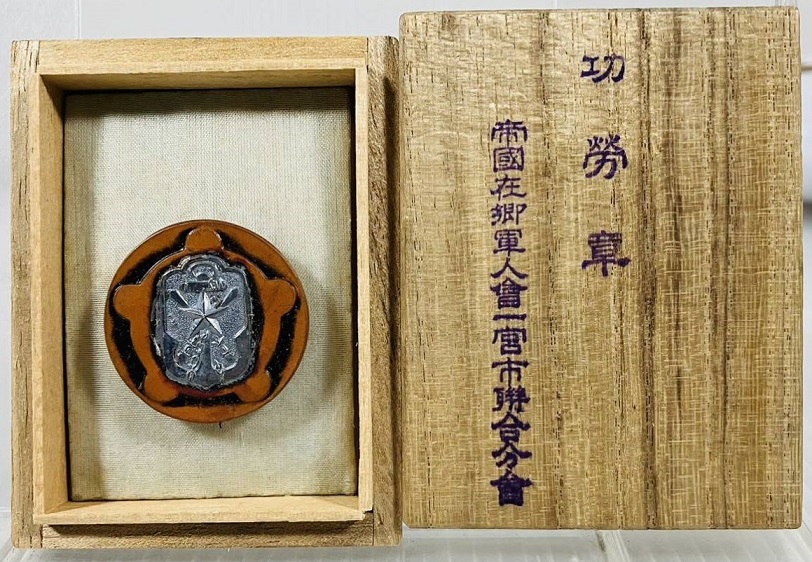 功勞章
帝國在鄉軍人會一宮市聯合分會